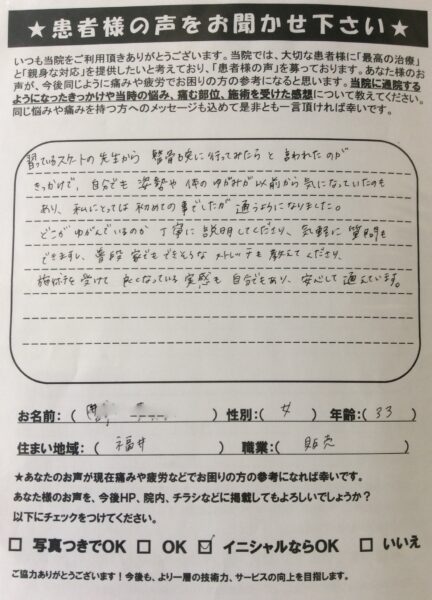 ★患者様の声をお聞かせ下さい★
いつも当院をご利用頂きありがとうございます。当院では、大切な患者様に「最高の治療」
と「親身な対応」を提供したいと考えており、「患者様の声」を募っております。あなた様のお
声が、今後同じように痛みや疲労でお困りの方の参考になると思います。当院に通院する
ようになったきっかけや当時の悩み、痛む部位、施術を受けた感想について教えてください。
同じ悩みや痛みを持つ方へのメッセージも込めて是非とも一言頂ければ幸いです。
習っているスケートの先生から 整骨院に行ってみたらと 言われたのが
きっかけで、自分でも 姿勢や 体の ゆがみが 以前から 気になっていたのも
あり、私にとっては 初めての 事でしたが 通うようになりました。
どこが ゆがんでいるのか 丁寧に 説明してくださり、気軽に 質問も
できますし、普段 家でも できそうな ストレッチも 教えて くださり、
施術を 受けて 良くなっている 実感も 自分でもあり、安心して 通えています。
お名前：（ ） 性別：（ 女 ） 年齢：（ 33 ）
住まい地域：（ 福井 ） 職業：（ 販売 ）
★あなたのお声が現在痛みや疲労などでお困りの方の参考になれば幸いです。
あなた様のお声を、今後HP、院内、チラシなどに掲載してもよろしいでしょうか？
以下にチェックをつけてください。
□ 写真つきでOK □ OK ☑ イニシャルならOK □ いいえ
ご協力ありがとうございます！今後も、より一層の技術力、サービスの向上を目指します。